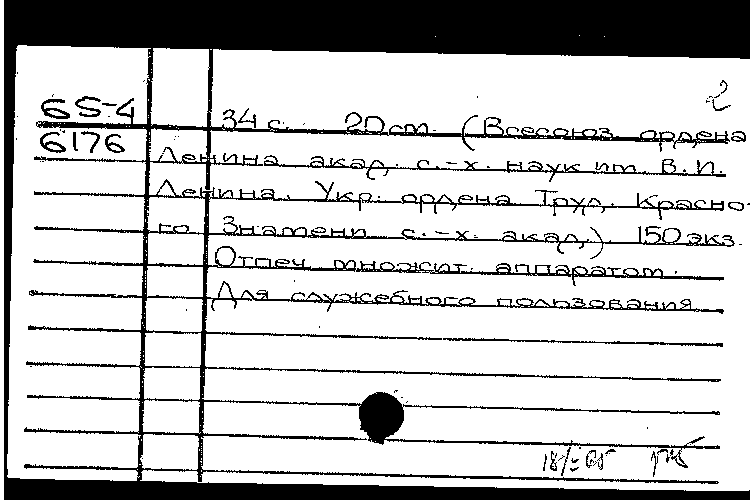 2
6S-4
6176
34 с. 20 см. (Всесоюз. ордена
Ленина акад. с.-х. наук им. В.И.
Ленина. Укр. ордена Труд. Красно-
го Знамени с.-х. акад.). 150 экз.
Отпеч. множит. аппаратом.
Для служебного пользования